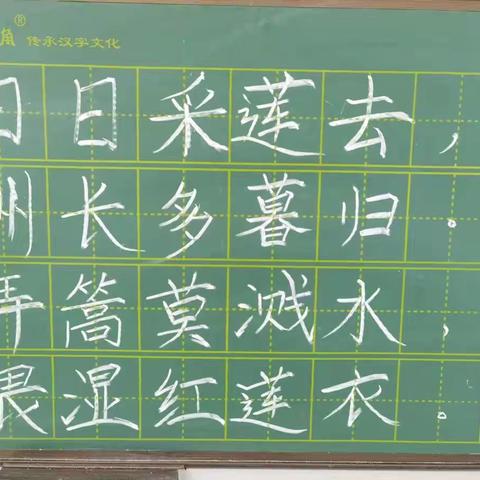 角® 传承汉字文化
日日采莲去，
洲长多暮归。
弄篙莫溅水，
畏湿红莲衣。